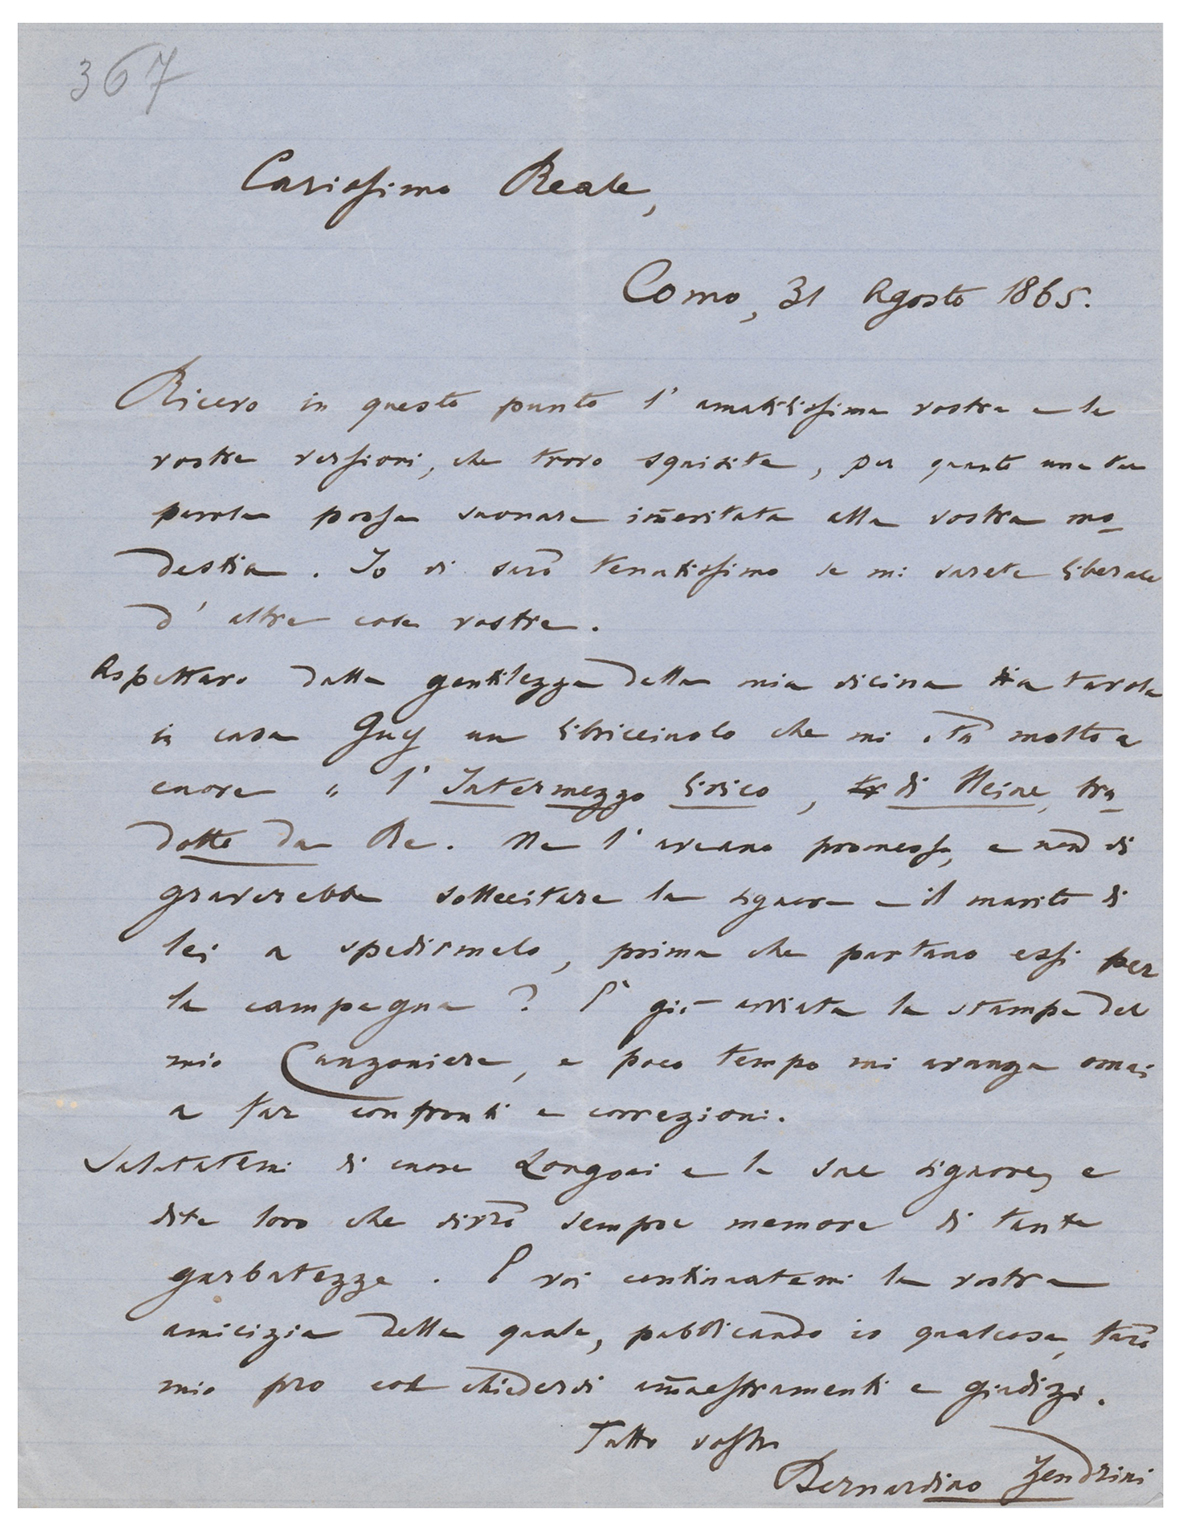 367
Carissimo Reale,
Como, 31 Agosto 1865.
Ricevo in questo punto l' amatissima vostra e le
vostre versioni, che trovo squisite, per quanto una tal
parola possa suonare im̃eritata alla vostra mo-
destia. Io vi sarò tenutissimo se mi sarete liberale
d' altre cose vostre.
Aspettavo dalla gentilezza della mia vicina di tavola
in casa Guy un libriccinolo che mi sta molto a
cuore " l' Intermezzo lirico, di Heine, tra-
dotto da Re. Me l' aveano promesso, e non vi
graverebbe sollecitare la signora e il marito di
lei a spedirmelo, prima che partano essi per
la campagna? È già avviata la stampa del
mio Canzoniere, e poco tempo mi avanza omai
a far confronti e correzioni.
Salutatemi di cuore Longoni e le sue signore, e
dite loro che vivrò sempre memore di tante
garbatezze. E voi continuatemi la vostra
amicizia della quale, pubblicando io qualcosa, farò
mio pro col chiedervi am̃aestramenti e giudizi.
Tutto vostro
Bernardino Zendrini